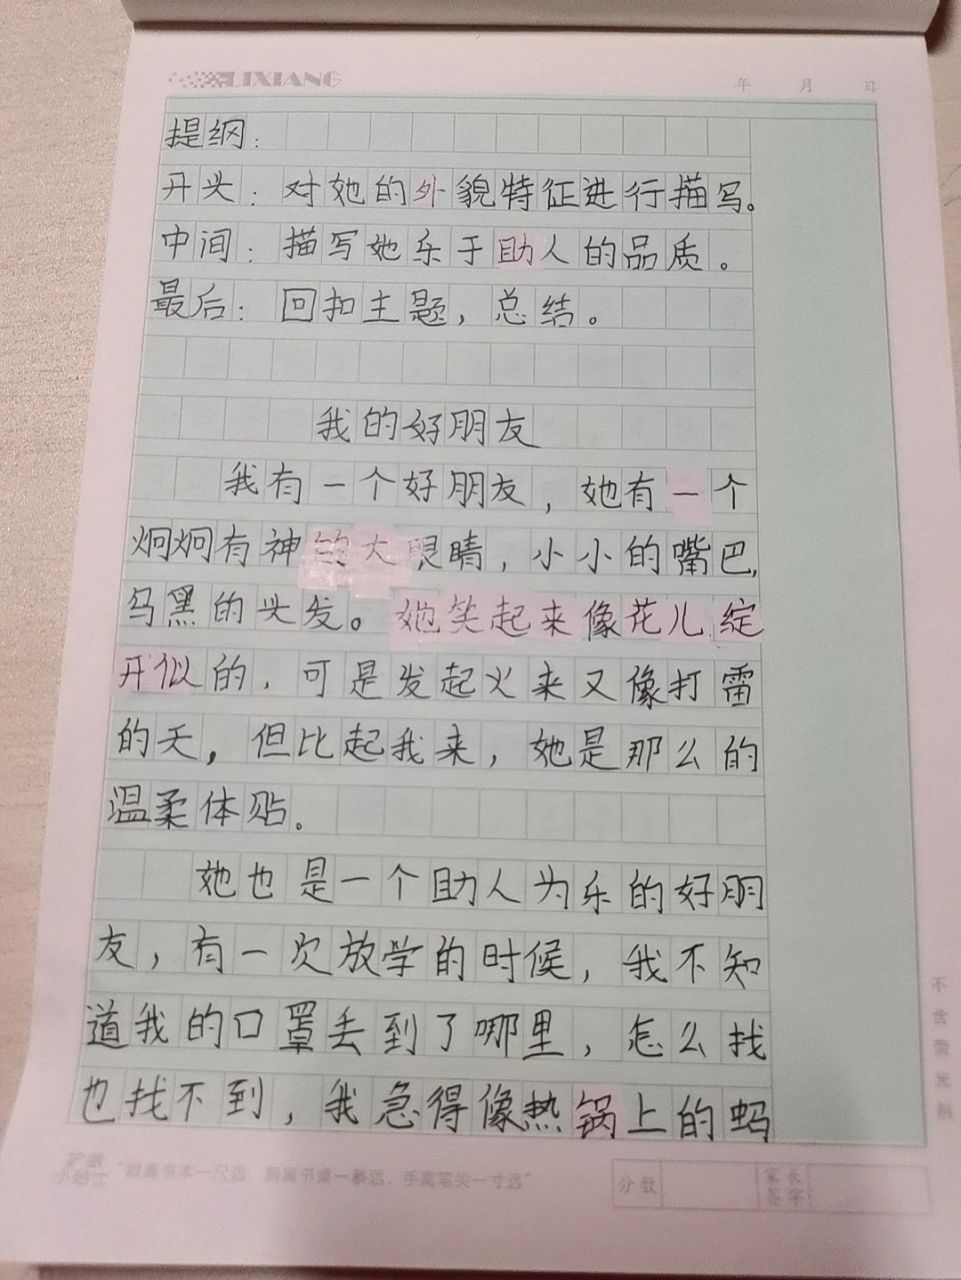 LIXIANG
年 月 日
提纲：
开头：对她的外貌特征进行描写。
中间：描写她乐于助人的品质。
最后：回扣主题，总结。
我的好朋友
我有一个好朋友，她有一个
炯炯有神的大眼睛，小小的嘴巴，
乌黑的头发。她笑起来像花儿绽
开似的，可是发起火来又像打雷
的天，但比起我来，她是那么的
温柔体贴。
她也是一个助人为乐的好朋
友，有一次放学的时候，我不知
道我的口罩丢到了哪里，怎么找
也找不到，我急得像热锅上的蚂
不含荧光剂
护眼小贴士 "眼离书本一尺远，胸离书桌一拳远，手离笔尖一寸远"
分数 家长签字